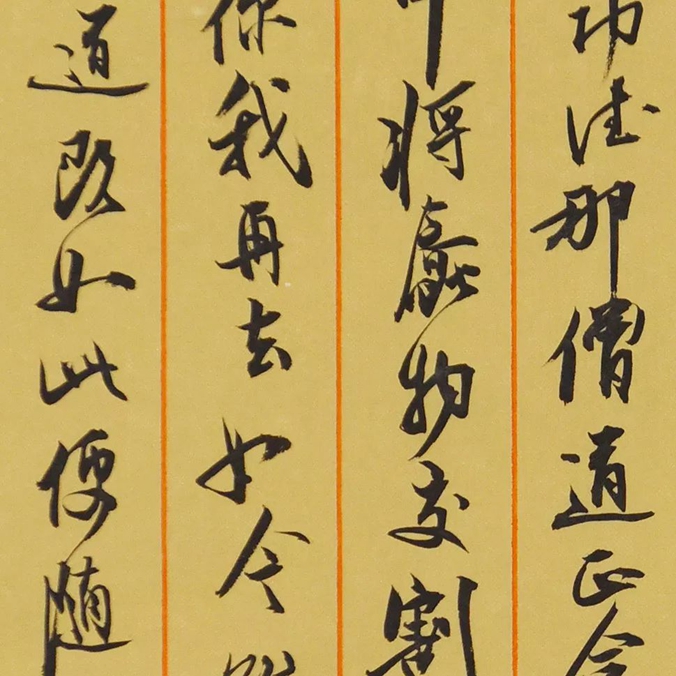 功德那僧道正合
中将蠢物交割
你我再去如今
道既如此便随